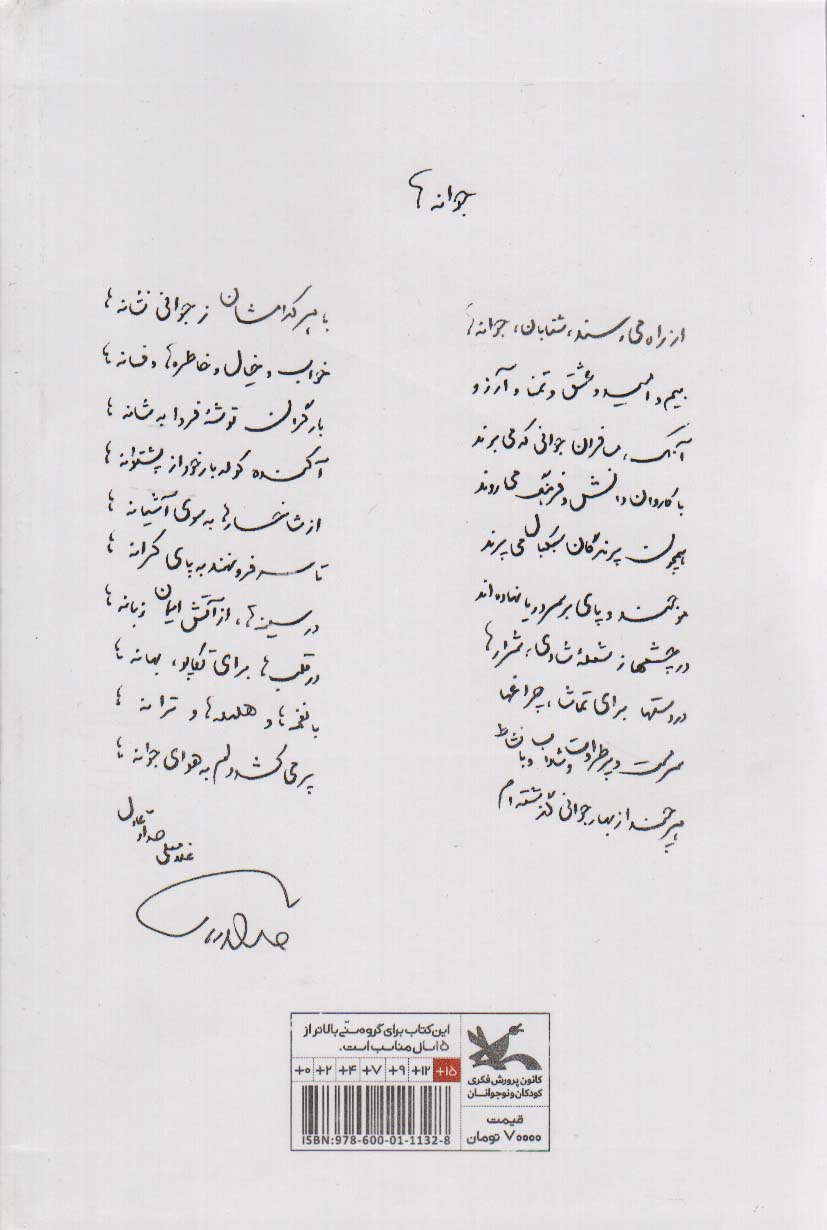 جوانه ها
از راه می رسند، شتابان، جوانه ها با هر کدامشان ز جوانی نشانه ها
بیم و امید و عشق و تمنا و آرزو خواب و خیال و خاطره ها و فسانه ها
آنک، مسافران جوانی که می برند بار گران توشهٔ فردا به شانه ها
با کاروان دانش و فرهنگ می روند آکنده کوله بار خود از پشتوانه ها
همچون پرندگان سبکبال می پرند از شاخسارها به سوی آشیانه ها
موجند و پای بر سر دریا نهاده اند تا سر فرو نهند به پای کرانه ها
در چشمها ز شعلهٔ شادی، شرارها در سینه ها، از آتش ایمان زبانه ها
در دستها برای تماشا، چراغها در قلب ها برای تکاپو، بهانه ها
سرمست و پر طراوت و شاداب و با نشاط با نغمه ها و هلهله ها و ترانه ها
هر چند از بهار جوانی گذشته ام پر می کشد دلم به هوای جوانه ها
غلامعلی
حداد عادل
این کتاب برای گروه سنّی بالاتر از
۱۵ سال مناسب است.
+۱۵ +۱۲ +۹ +۷ +۴ +۲ +۰
ISBN:978-600-01-1132-8
کانون پرورش فکری
کودکان و نوجوانان
قیمت
۷۰۰۰۰ تومان